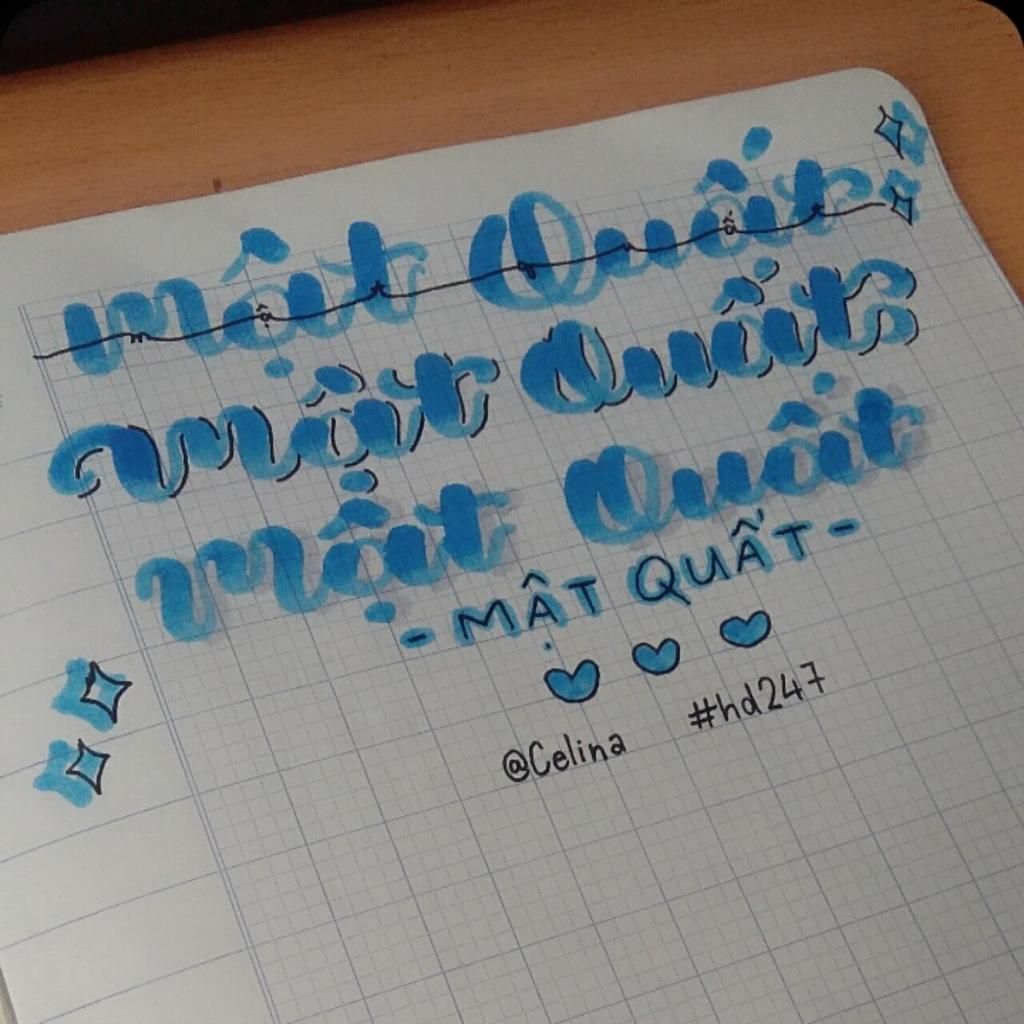 Mật Quất
Mật Quất
Mật Quất
- MẬT QUẤT -
@Celina #hd247